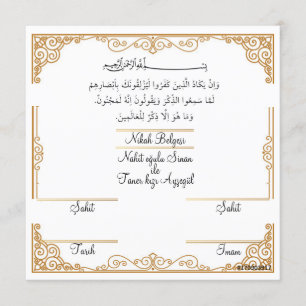 بِسْمِ اللهِ الرَّحْمٰنِ الرَّحِيمِ
وَاِنْ يَكَادُ الَّذِينَ كَفَرُوا لَيُزْلِقُونَكَ بِاَبْصَارِهِمْ
لَمَّا سَمِعُوا الذِّكْرَ وَيَقُولُونَ اِنَّهُ لَمَجْنُونٌ.
وَمَا هُوَ اِلَّا ذِكْرٌ لِلْعَالَمِينَ.
Nikah Belgesi
Nahit oğulu Sinan
ile
Taner kızı Ayşegül
Şahit Şahit
Tarih Imam